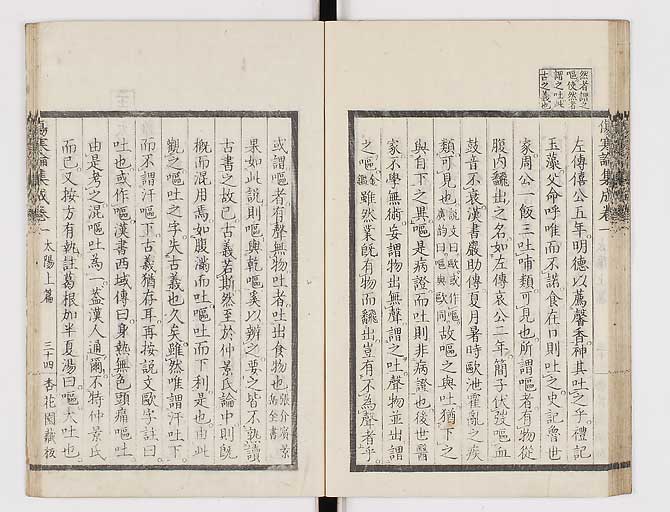 然者謂之
嘔使然者
謂之吐此
古之義也
傷寒論集成卷一
左傳僖公五年明德以薦馨香神其吐之乎禮記
玉藻父命呼唯而不諾食在口則吐之史記魯世
家周公一飯三吐哺類可見也所謂嘔者有物從
腹内飜出之名如左傳哀公二年簡子伏弢嘔血
鼓音不衰漢書嚴助傳夏月暑時歐泄霍亂之疾
類可見也說文曰歐或作嘔廣韵曰嘔與歐同故嘔之與吐猶下之
與自下之異嘔是病證而吐則非病證也後世醫
家不學無術妄謂物出無聲謂之吐聲物並出謂
之嘔雖然業既有物而飜出豈有不為聲者乎
或謂嘔者有聲無物吐者吐出食物也張介賓景岳全書
果如此說則嘔與乾嘔奚以辨之要之皆不熟讀
古書之故已古義若斯然至於仲景氏論中則既
概而混用焉如腹滿而吐嘔吐而下利是也由此
觀之嘔吐之字失古義也久矣雖然唯謂汗吐下
而不謂汗嘔下古義猶存耳再按說文歐字註曰
吐也或作嘔漢書西域傳曰身熱無色頭痛嘔吐
由是考之混嘔吐為一蓋漢人通爾不特仲景氏
而已又按方有執註葛根加半夏湯曰嘔大吐也
傷寒論集成卷一 太陽上篇 三十四 杏花園藏板